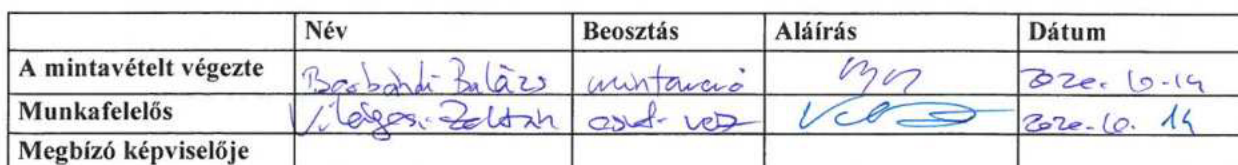 Név Beosztás Aláírás Dátum
A mintavételt végezte Balázs mintavevő 2020.10.14
Munkafelelős Világosi Zoltán oszt. vez 2020.10. 14
Megbízó képviselője